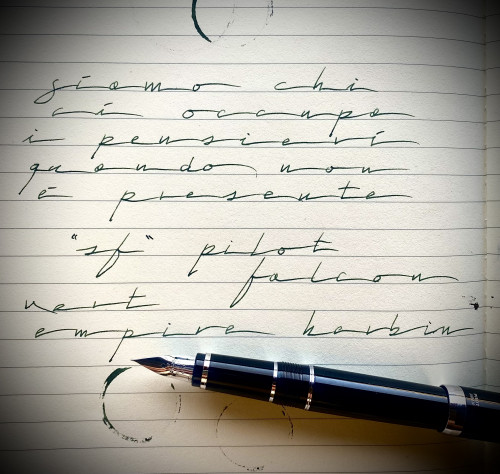 siamo chi
ci occupa
i pensieri
quando non
è presente
"sf" pilot
falcon
vert
empire harbin